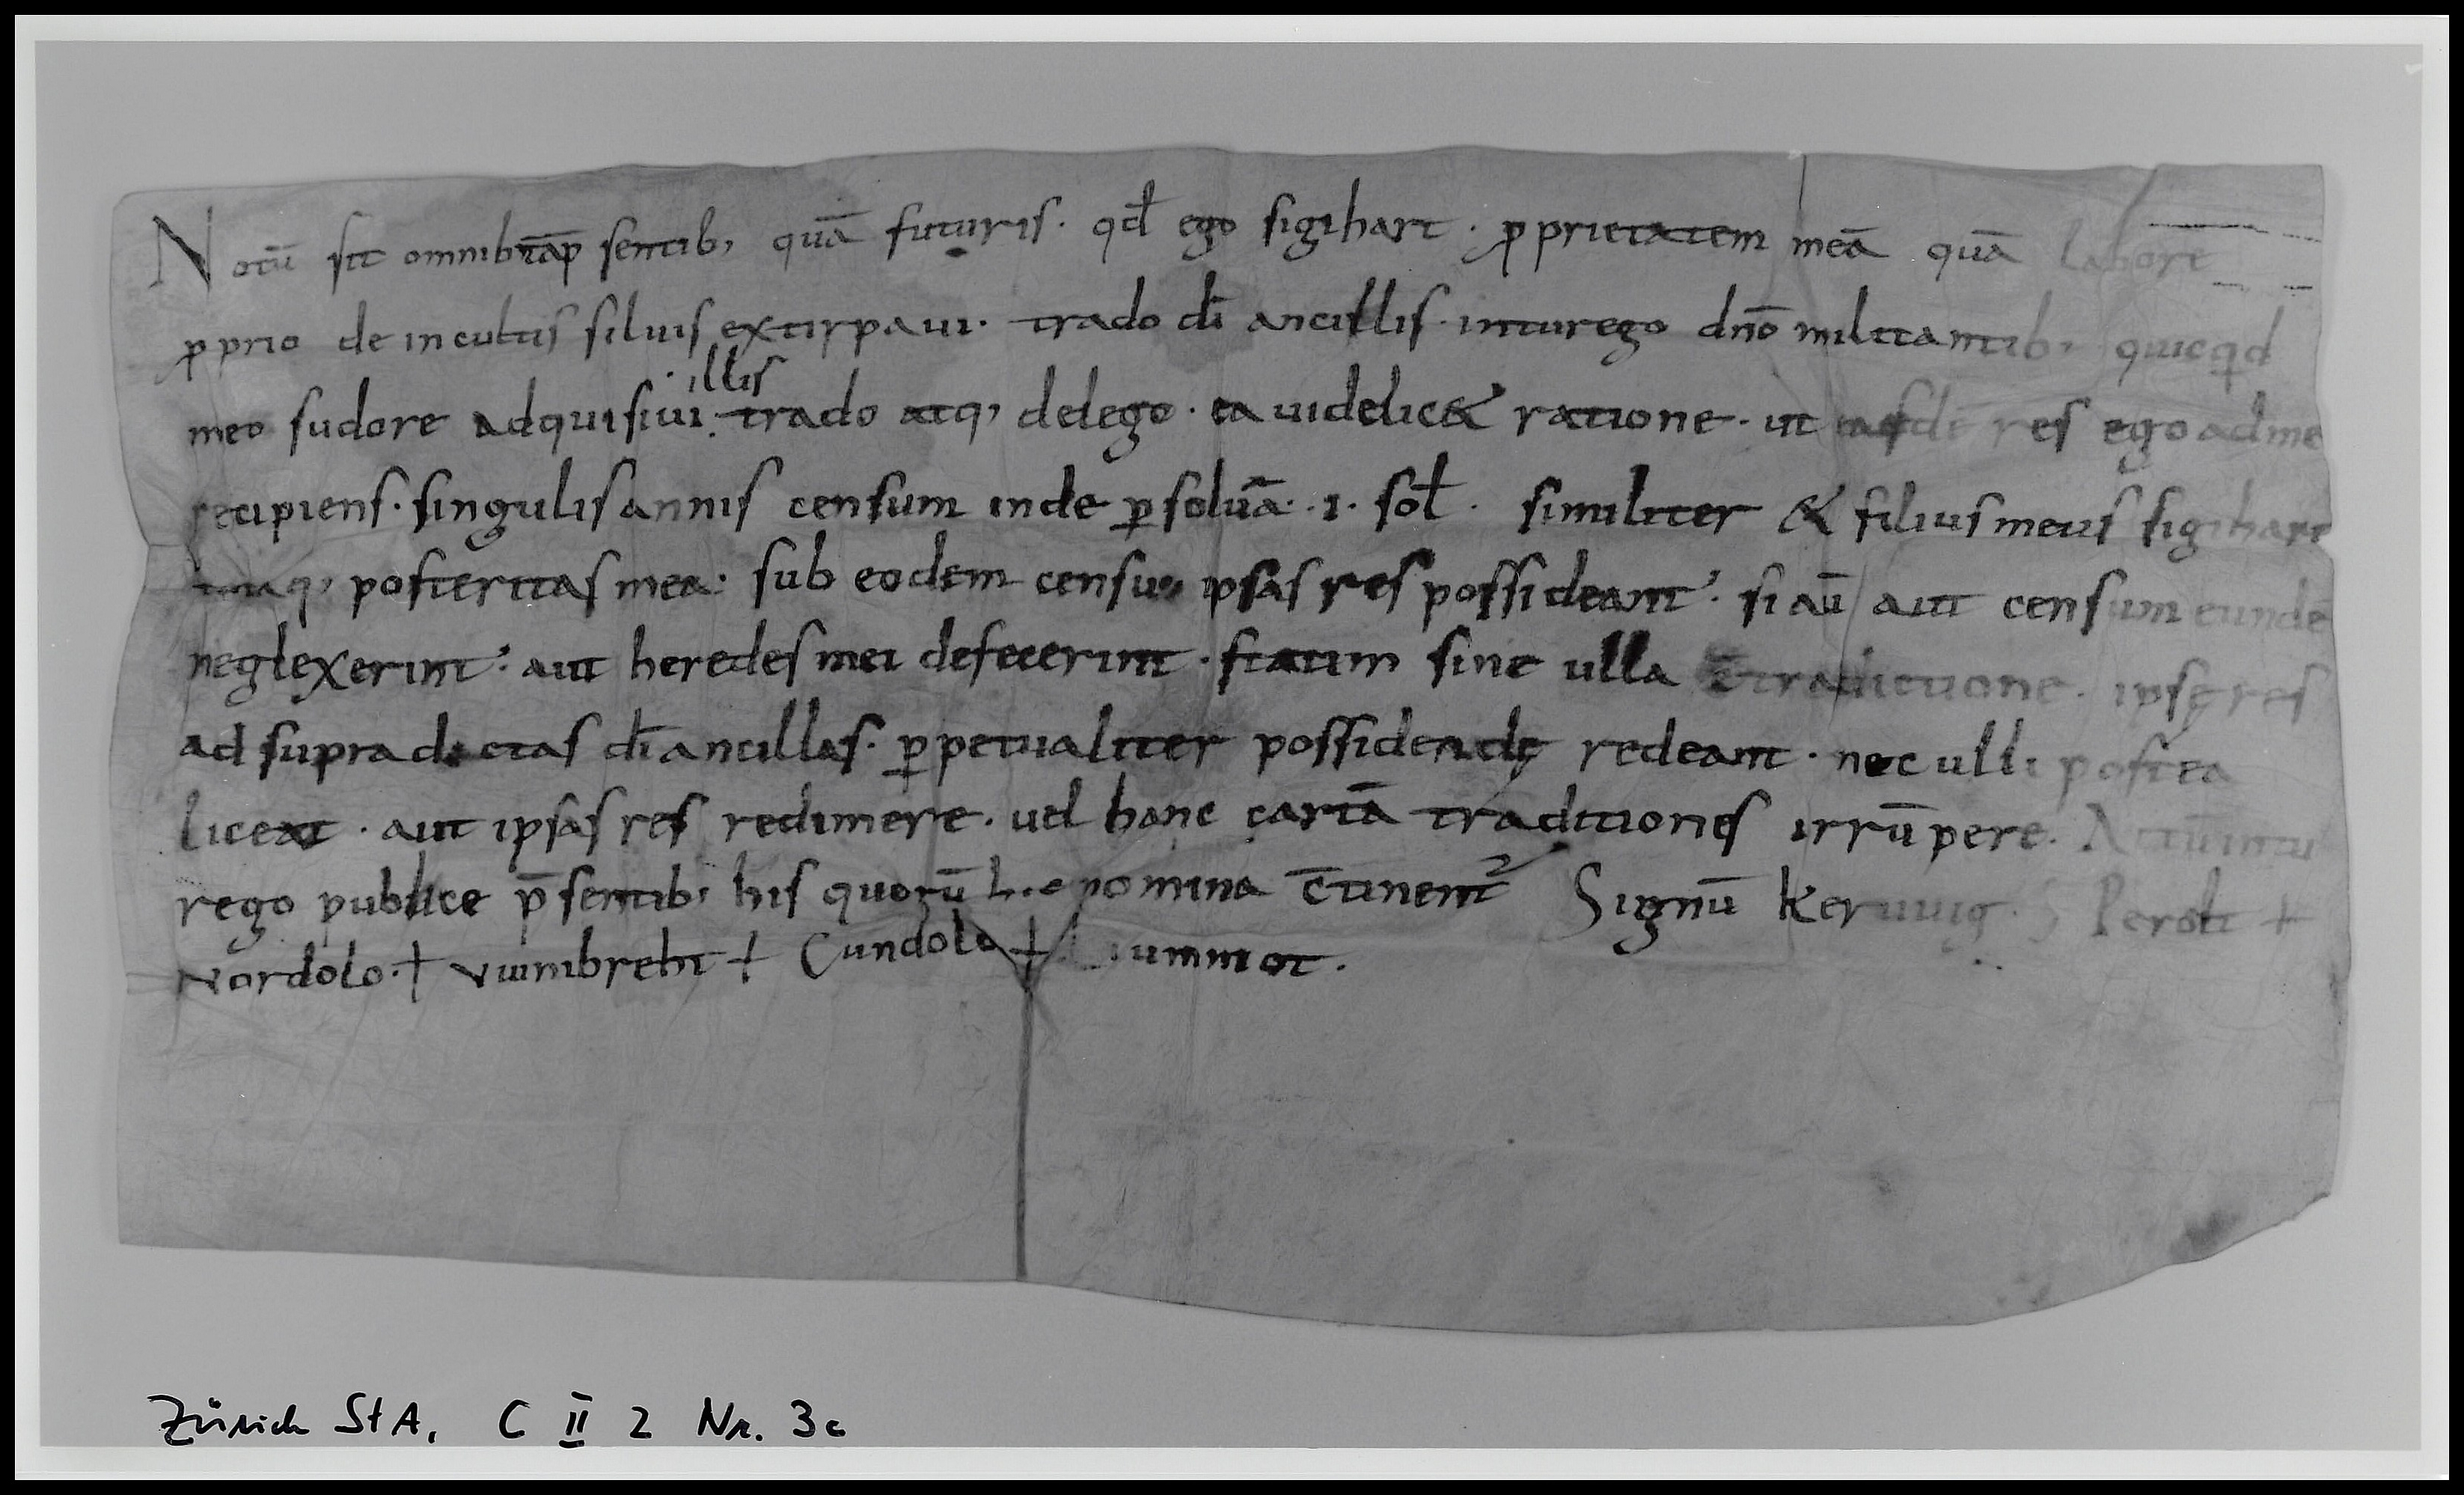 Notū sit omnib; tā p̄sentib; quā futuris· qđ ego sigihart· ꝓprietatem meā quā labore
ꝓprio de incultis siluis extirpaui· trado dī ancillis· inturego dn̄o militantib; quicqd
illis
meo sudore adquisiui· trado atq; delego· ea uidelic& ratione· ut easdē res ego ad me
recipiens· singulis annis censum inde ꝑsoluā· 1· sol̄· similiter & filius meus sigihart
posteritas mea· sub eodem censu ipsas res possideant· si aū aut censum eundē
neglexerint· aut heredes mei defecerint· statim sine ulla c̄tradictione· ipsę res
ad supradictas dī ancillas· ꝑpetualiter possidendę redeant· nec ulli postea
liceat· aut ipsas res redimere· uel hanc cartā traditionis irrūpere· Actū intu
rego publice p̄sentib; his quorū hic nomina c̄tinent᷑ Signū Keruuig· S Perolt +
Nordolo· + vuinibreht + Cundolo + Liummot·
Zürich StA, C II 2 Nr. 3c